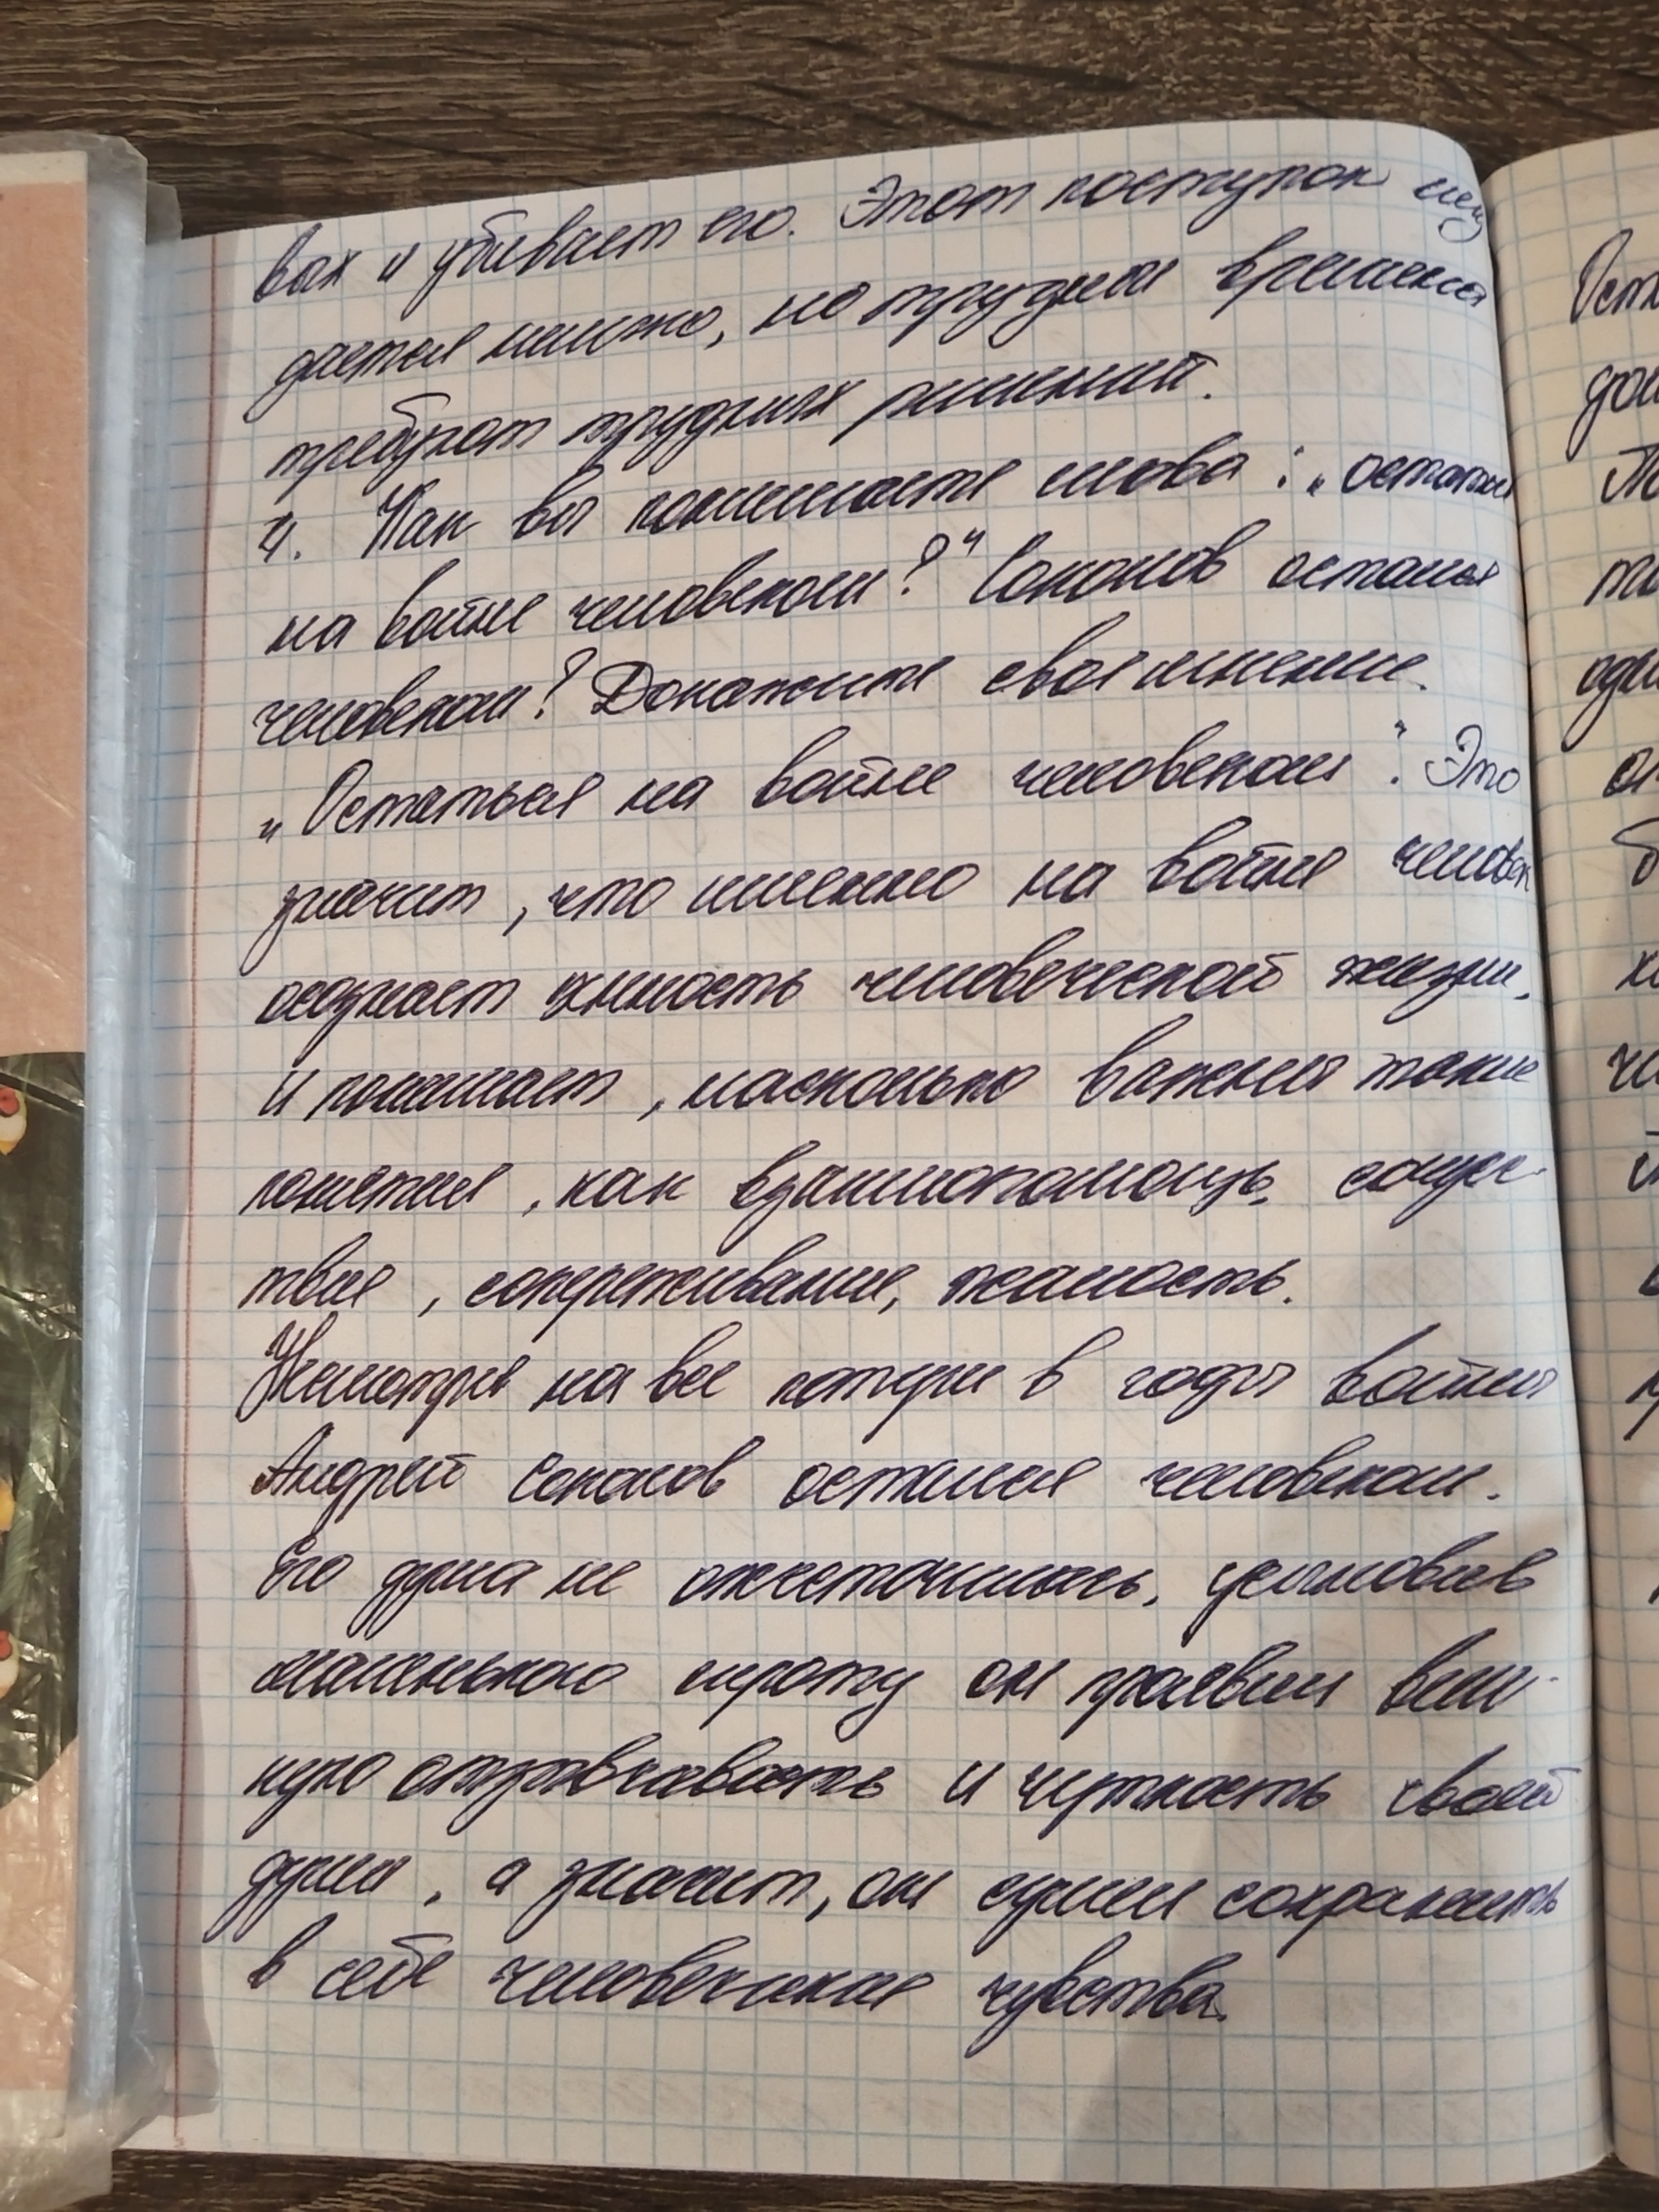 вах и убивает его. Этот поступок
дается тяжело, но трудная времена
требуют трудных решений.
4. Как вы понимаете слова: "остаться
на войне человеком?" Соколов остался
человеком? Докажите свое мнение.
"Остаться на войне человеком". Это
значит, что именно на войне человек
осознает ценность человеческой жизни.
и понимает, насколько важны такие
понятия, как взаимопомощь, сочувс-
твие, сопереживание, жалость.
Несмотря на все потери в годы войны
Андрей Соколов остался человеком.
Его душа не ожесточилась, усыновив
маленького сироту он проявил вели-
кую отзывчивость и чуткость своей
души, а значит, он сумел сохранить
в себе человеческие чувства.
Ост